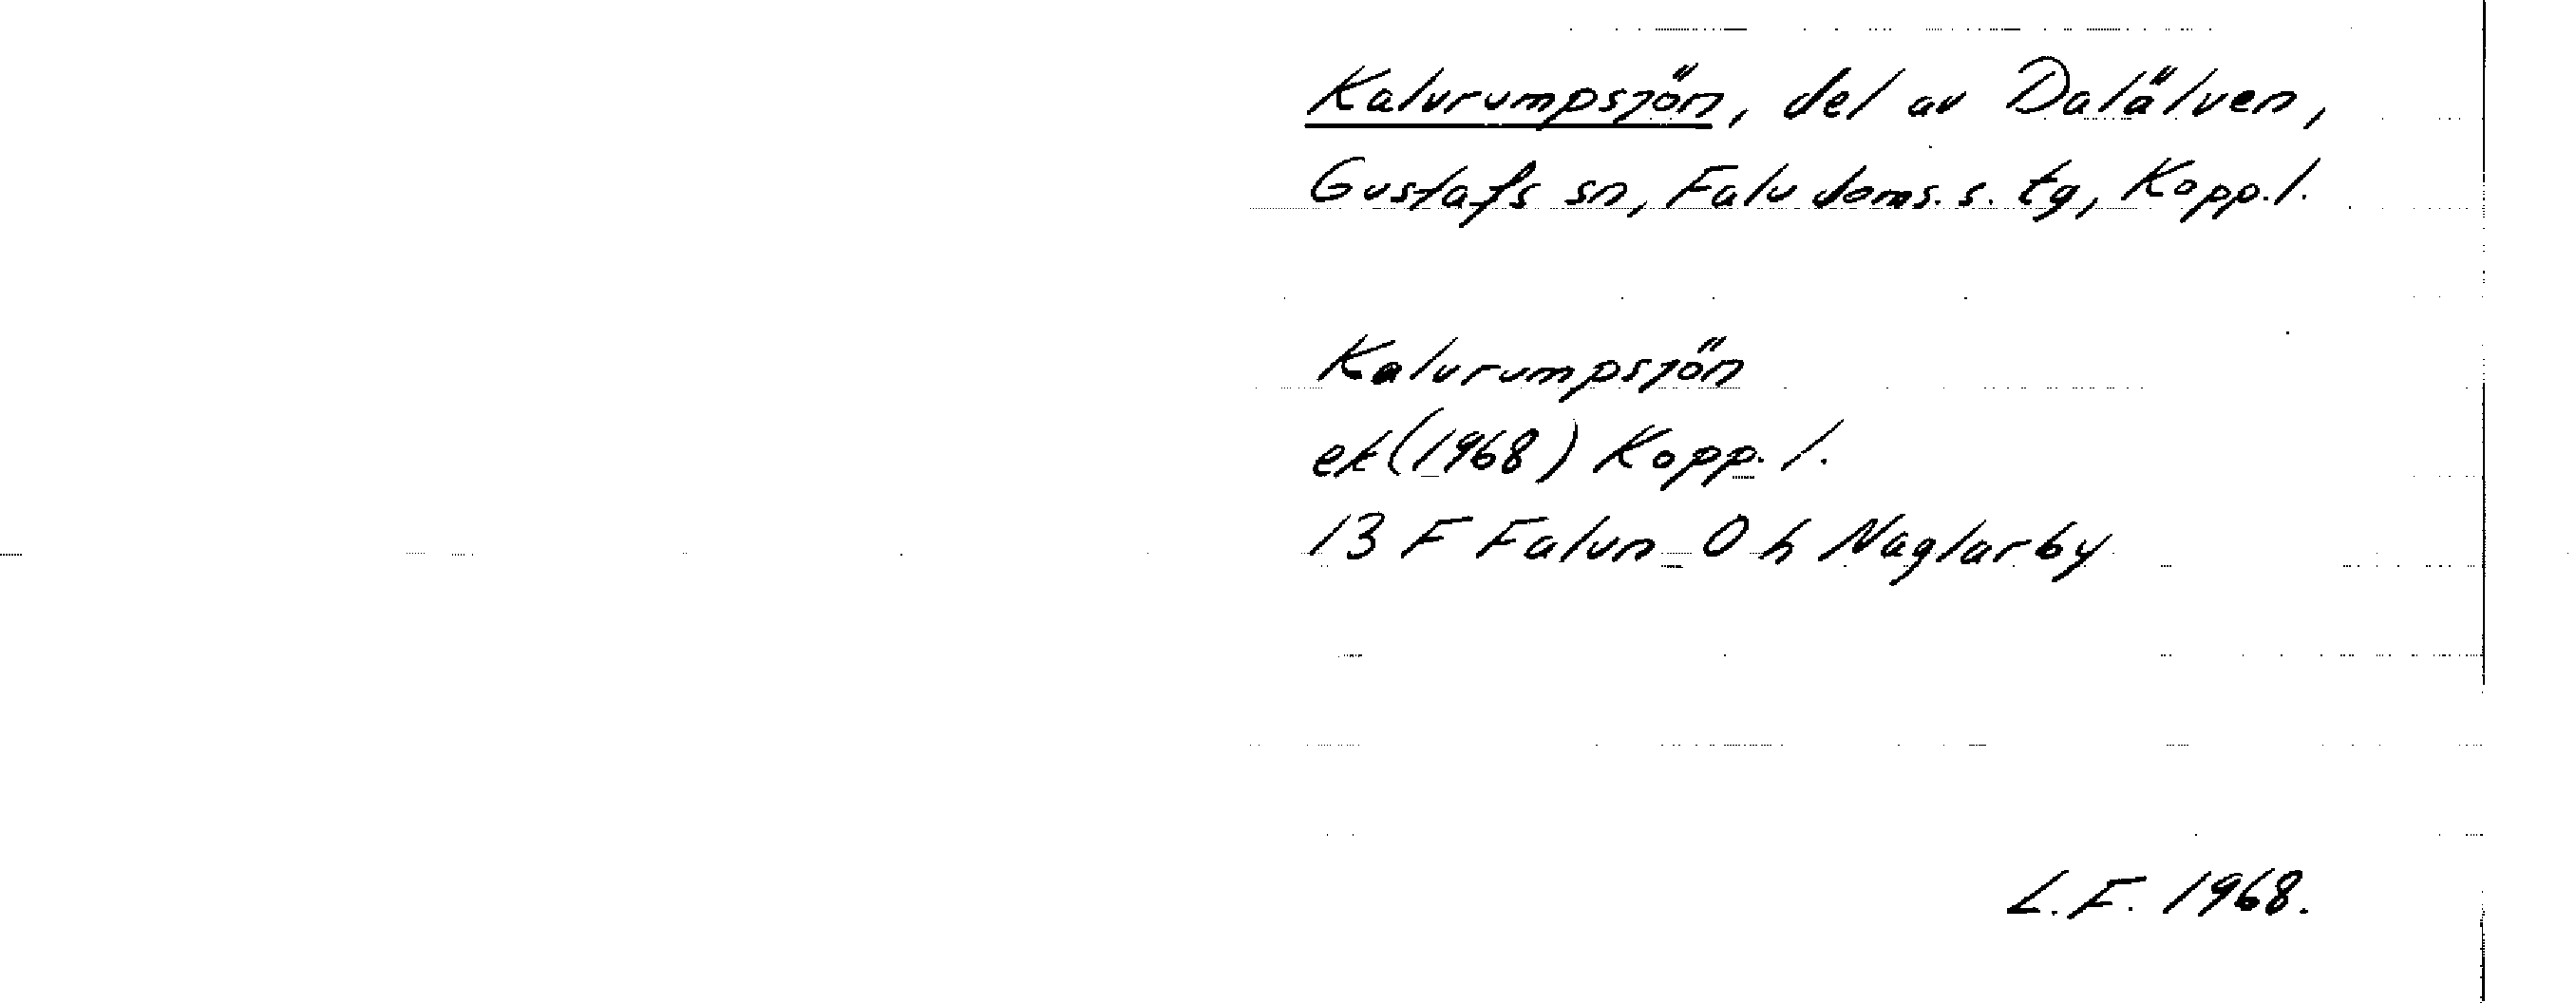 Kalvrumpsjön, del av Dalälven,
Gustafs sn, Falu doms. s. tg, Kopp. l.
Kalvrumpsjön
ek (1968) Kopp. l.
13 F Falun 0 h Naglarby
L. F. 1968.